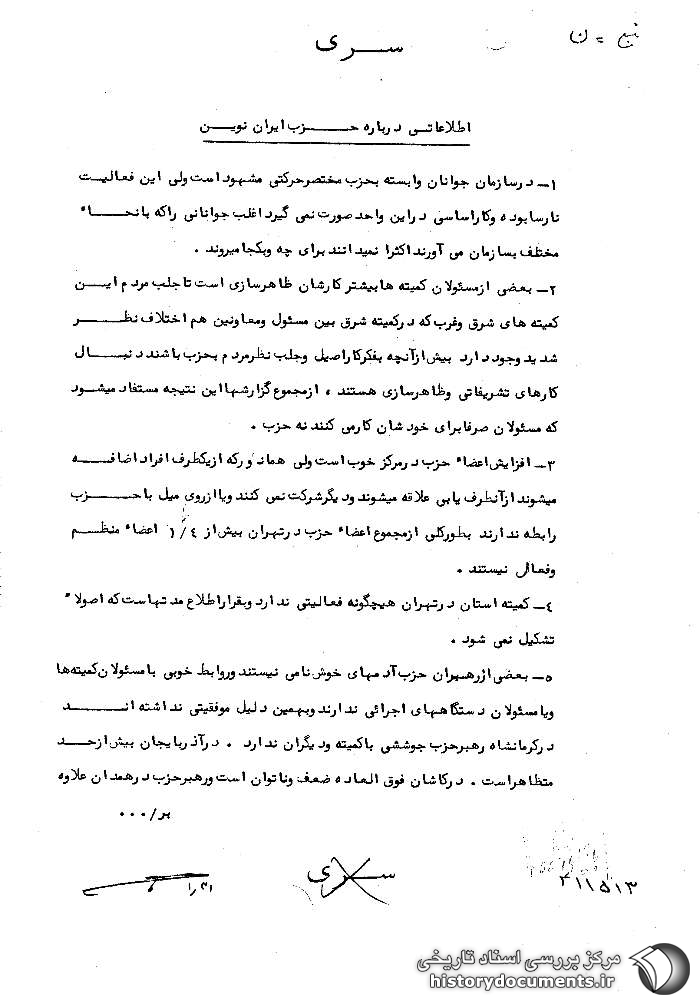 سری
اطلاعاتی درباره حزب ایران نوین
۱- در سازمان جوانان وابسته بحزب مختصر حرکتی مشهود است ولی این فعالیت
نارسا بوده و کار اساسی در این واحد صورت نمی گیرد اغلب جوانانی را که بانحاء
مختلف بسازمان می آورند اکثرا نمیدانند برای چه و بکجا میروند .
۲- بعضی از مسئولان کمیته ها بیشتر کارشان ظاهرسازی است تا جلب مردم این
کمیته های شرق و غرب که در کمیته شرق بین مسئول و معاونین هم اختلاف نظر
شدید وجود دارد بیش از آنچه بفکر کار اصیل و جلب نظر مردم بحزب باشند دنبال
کارهای تشریفاتی و ظاهرسازی هستند ، از مجموع گزارشها این نتیجه مستفاد میشود
که مسئولان صرفا برای خودشان کار می کنند نه حزب .
۳- افزایش اعضاء حزب در مرکز خوب است ولی همانطور که از یکطرف افراد اضافه
میشوند از آنطرف یا بی علاقه میشوند و دیگر شرکت نمی کنند و یا از روی میل با حزب
رابطه ندارند بطور کلی از مجموع اعضاء حزب در تهران بیش از ۱/۴ اعضاء منظم
و فعال نیستند .
۴- کمیته استان در تهران هیچگونه فعالیتی ندارد و بقرار اطلاع مدتهاست که اصولا"
تشکیل نمی شود .
۵- بعضی از رهبران حزب آدمهای خوش نامی نیستند و روابط خوبی با مسئولان کمیته ها
و یا مسئولان دستگاههای اجرائی ندارند و بهمین دلیل موفقیتی نداشته اند
در کرمانشاه رهبر حزب جوششی با کمیته و دیگران ندارد . در آذربایجان بیش از حد
متظاهر است . در کاشان فوق العاده ضعف و ناتوان است و رهبر حزب در همدان علاوه
بر/...
سری
۳۱۱۵۱۳
مرکز بررسی اسناد تاریخی
historydocuments.ir